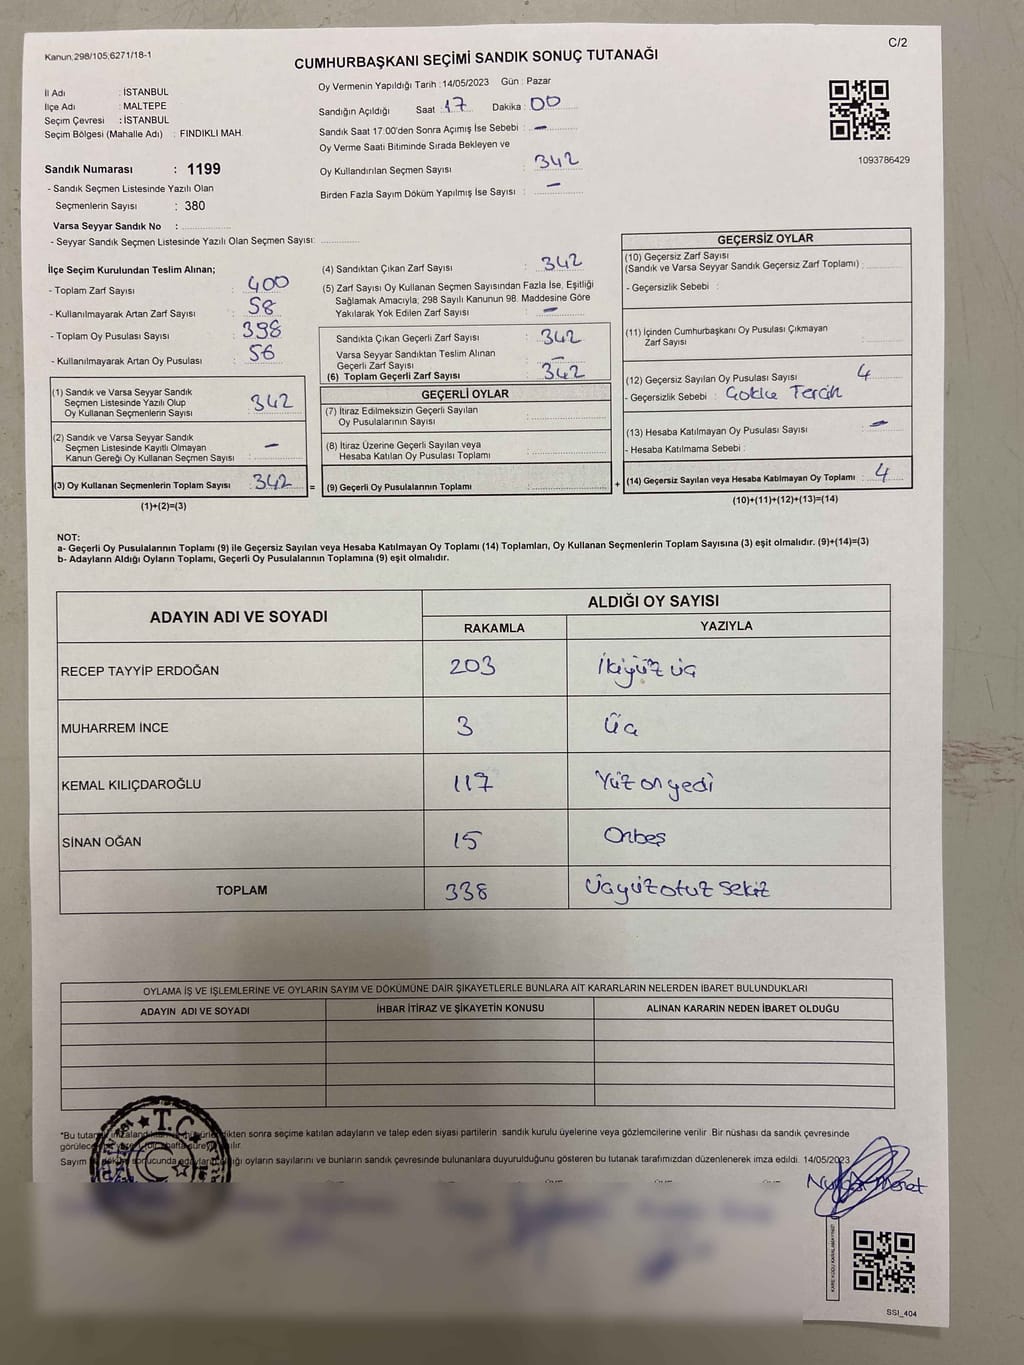 Kanun,298/105,6271/18-1
C/2
CUMHURBAŞKANI SEÇİMİ SANDIK SONUÇ TUTANAĞI
İl Adı : İSTANBUL
İlçe Adı : MALTEPE
Seçim Çevresi : İSTANBUL
Seçim Bölgesi (Mahalle Adı) : FINDIKLI MAH.
Sandık Numarası : 1199
- Sandık Seçmen Listesinde Yazılı Olan
Seçmenlerin Sayısı : 380
Varsa Seyyar Sandık No :
- Seyyar Sandık Seçmen Listesinde Yazılı Olan Seçmen Sayısı:
Oy Vermenin Yapıldığı Tarih : 14/05/2023 Gün : Pazar
Sandığın Açıldığı Saat : 17 Dakika : 00
Sandık Saat 17.00'den Sonra Açımış İse Sebebi : -
Oy Verme Saati Bitiminde Sırada Bekleyen ve
Oy Kullandırılan Seçmen Sayısı : 342
Birden Fazla Sayım Döküm Yapılmış İse Sayısı : -
1093786429
İlçe Seçim Kurulundan Teslim Alınan;
- Toplam Zarf Sayısı : 400
- Kullanılmayarak Artan Zarf Sayısı : 58
- Toplam Oy Pusulası Sayısı : 398
- Kullanılmayarak Artan Oy Pusulası : 56
(1) Sandık ve Varsa Seyyar Sandık
Seçmen Listesinde Yazılı Olup
Oy Kullanan Seçmenlerin Sayısı : 342
(2) Sandık ve Varsa Seyyar Sandık
Seçmen Listesinde Kayıtlı Olmayan
Kanun Gereği Oy Kullanan Seçmen Sayısı : -
(3) Oy Kullanan Seçmenlerin Toplam Sayısı : 342
(1)+(2)=(3)
(4) Sandıktan Çıkan Zarf Sayısı : 342
(5) Zarf Sayısı Oy Kullanan Seçmen Sayısından Fazla İse, Eşitliği
Sağlamak Amacıyla, 298 Sayılı Kanunun 98. Maddesine Göre
Yakılarak Yok Edilen Zarf Sayısı : -
Sandıkta Çıkan Geçerli Zarf Sayısı : 342
Varsa Seyyar Sandıktan Teslim Alınan
Geçerli Zarf Sayısı : -
(6) Toplam Geçerli Zarf Sayısı : 342
GEÇERLİ OYLAR
(7) İtiraz Edilmeksizin Geçerli Sayılan
Oy Pusulalarının Sayısı :
(8) İtiraz Üzerine Geçerli Sayılan veya
Hesaba Katılan Oy Pusulası Toplamı :
= (9) Geçerli Oy Pusulalarının Toplamı : +
GEÇERSİZ OYLAR
(10) Geçersiz Zarf Sayısı
(Sandık ve Varsa Seyyar Sandık Geçersiz Zarf Toplamı) :
- Geçersizlik Sebebi :
(11) İçinden Cumhurbaşkanı Oy Pusulası Çıkmayan
Zarf Sayısı :
(12) Geçersiz Sayılan Oy Pusulası Sayısı : 4
- Geçersizlik Sebebi : Çoklu Tercih
(13) Hesaba Katılmayan Oy Pusulası Sayısı : -
- Hesaba Katılmama Sebebi :
(14) Geçersiz Sayılan veya Hesaba Katılmayan Oy Toplamı : 4
(10)+(11)+(12)+(13)=(14)
NOT:
a- Geçerli Oy Pusulalarının Toplamı (9) ile Geçersiz Sayılan veya Hesaba Katılmayan Oy Toplamı (14) Toplamları, Oy Kullanan Seçmenlerin Toplam Sayısına (3) eşit olmalıdır. (9)+(14)=(3)
b- Adayların Aldığı Oyların Toplamı, Geçerli Oy Pusulalarının Toplamına (9) eşit olmalıdır.
ADAYIN ADI VE SOYADI ALDIĞI OY SAYISI
RAKAMLA YAZIYLA
RECEP TAYYİP ERDOĞAN 203 İkiyüz üç
MUHARREM İNCE 3 Üç
KEMAL KILIÇDAROĞLU 117 Yüz onyedi
SİNAN OĞAN 15 Onbeş
TOPLAM 338 Üçyüz otuz sekiz
OYLAMA İŞ VE İŞLEMLERİNE VE OYLARIN SAYIM VE DÖKÜMÜNE DAİR ŞİKAYETLERLE BUNLARA AİT KARARLARIN NELERDEN İBARET BULUNDUKLARI
ADAYIN ADI VE SOYADI İHBAR İTİRAZ VE ŞİKAYETİN KONUSU ALINAN KARARIN NEDEN İBARET OLDUĞU
T.C.
*Bu sonra seçime katılan adayların ve talep eden siyasi partilerin sandık kurulu üyelerine veya gözlemcilerine verilir. Bir nüshası da sandık çevresinde
Sayım oyların sayılarını ve bunların sandık çevresinde bulunanlara duyurulduğunu gösteren bu tutanak tarafımızdan düzenlenerek imza edildi. 14/05/2023
SSI_404